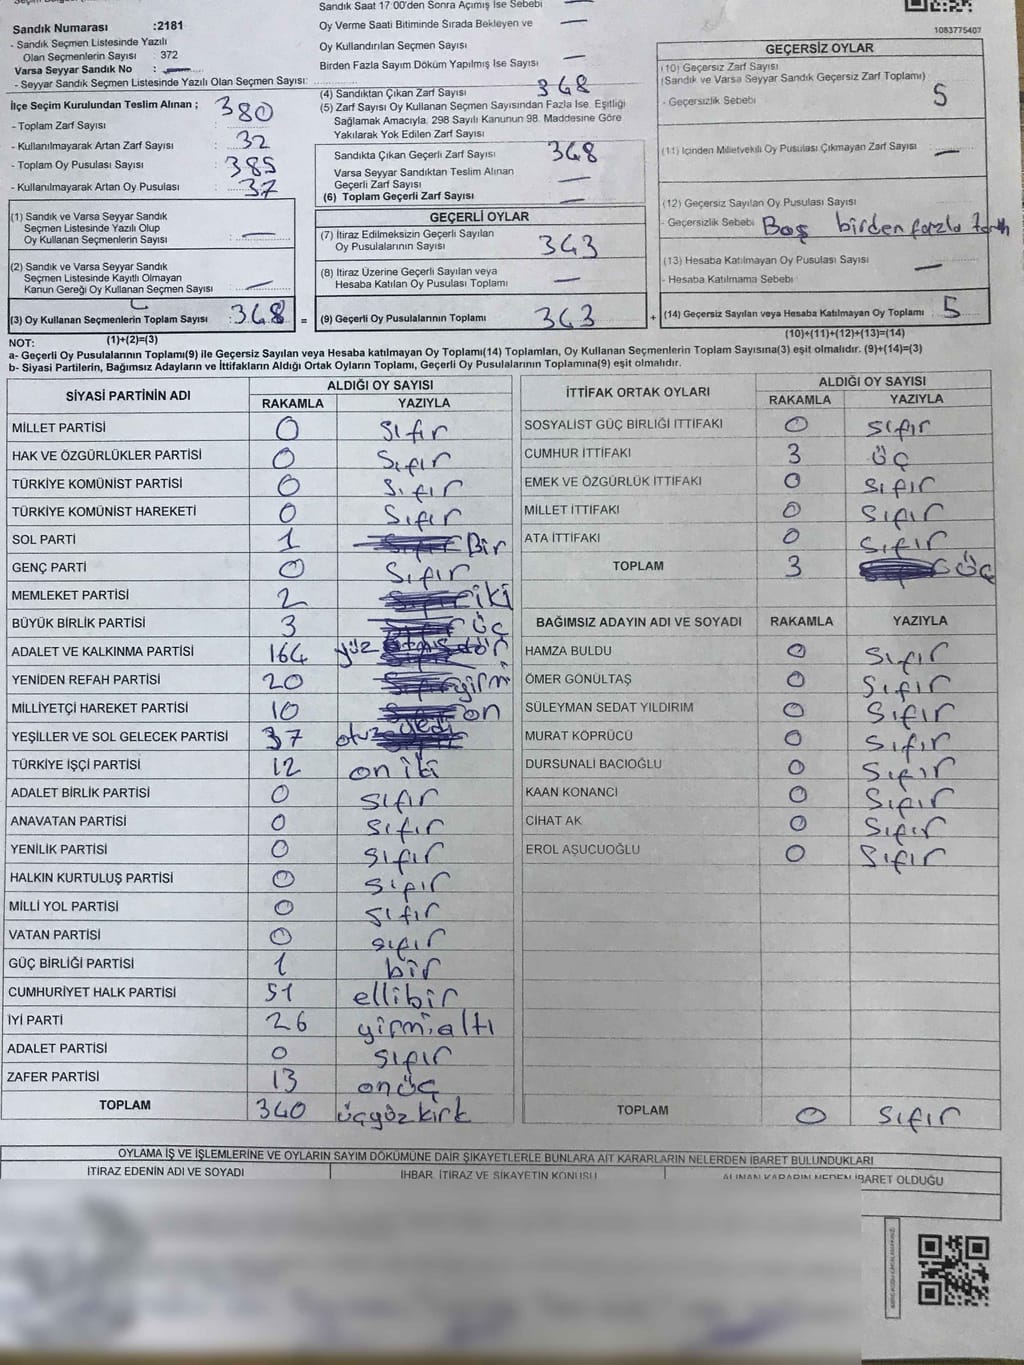 Sandık Numarası :2181
- Sandık Seçmen Listesinde Yazılı
Olan Seçmenlerin Sayısı : 372
Varsa Seyyar Sandık No : —
- Seyyar Sandık Seçmen Listesinde Yazılı Olan Seçmen Sayısı:
İlçe Seçim Kurulundan Teslim Alınan ;
- Toplam Zarf Sayısı : 380
- Kullanılmayarak Artan Zarf Sayısı : 32
- Toplam Oy Pusulası Sayısı : 385
- Kullanılmayarak Artan Oy Pusulası : 37
(1) Sandık ve Varsa Seyyar Sandık
Seçmen Listesinde Yazılı Olup
Oy Kullanan Seçmenlerin Sayısı : —
(2) Sandık ve Varsa Seyyar Sandık
Seçmen Listesinde Kayıtlı Olmayan
Kanun Gereği Oy Kullanan Seçmen Sayısı : —
(3) Oy Kullanan Seçmenlerin Toplam Sayısı : 368 =
(1)+(2)=(3)
Sandık Saat 17:00'den Sonra Açımış İse Sebebi —
Oy Verme Saati Bitiminde Sırada Bekleyen ve —
Oy Kullandırılan Seçmen Sayısı
Birden Fazla Sayım Döküm Yapılmış İse Sayısı —
(4) Sandıktan Çıkan Zarf Sayısı 368
(5) Zarf Sayısı Oy Kullanan Seçmen Sayısından Fazla İse, Eşitliği
Sağlamak Amacıyla, 298 Sayılı Kanunun 98. Maddesine Göre
Yakılarak Yok Edilen Zarf Sayısı
Sandıkta Çıkan Geçerli Zarf Sayısı 368
Varsa Seyyar Sandıktan Teslim Alınan
Geçerli Zarf Sayısı —
(6) Toplam Geçerli Zarf Sayısı —
GEÇERLİ OYLAR
(7) İtiraz Edilmeksizin Geçerli Sayılan
Oy Pusulalarının Sayısı 363
(8) İtiraz Üzerine Geçerli Sayılan veya
Hesaba Katılan Oy Pusulası Toplamı —
(9) Geçerli Oy Pusulalarının Toplamı 363 +
1083775407
GEÇERSİZ OYLAR
(10) Geçersiz Zarf Sayısı
(Sandık ve Varsa Seyyar Sandık Geçersiz Zarf Toplamı)
- Geçersizlik Sebebi 5
(11) İçinden Milletvekili Oy Pusulası Çıkmayan Zarf Sayısı —
(12) Geçersiz Sayılan Oy Pusulası Sayısı
- Geçersizlik Sebebi Boş birden fazla
(13) Hesaba Katılmayan Oy Pusulası Sayısı —
- Hesaba Katılmama Sebebi
(14) Geçersiz Sayılan veya Hesaba Katılmayan Oy Toplamı : 5
(10)+(11)+(12)+(13)=(14)
NOT:
a- Geçerli Oy Pusulalarının Toplamı(9) ile Geçersiz Sayılan veya Hesaba katılmayan Oy Toplamı(14) Toplamları, Oy Kullanan Seçmenlerin Toplam Sayısına(3) eşit olmalıdır. (9)+(14)=(3)
b- Siyasi Partilerin, Bağımsız Adayların ve İttifakların Aldığı Ortak Oyların Toplamı, Geçerli Oy Pusulalarının Toplamına(9) eşit olmalıdır.
SİYASİ PARTİNİN ADI ALDIĞI OY SAYISI
RAKAMLA YAZIYLA
MİLLET PARTİSİ 0 sıfır
HAK VE ÖZGÜRLÜKLER PARTİSİ 0 Sıfır
TÜRKİYE KOMÜNİST PARTİSİ 0 Sıfır
TÜRKİYE KOMÜNİST HAREKETİ 0 Sıfır
SOL PARTİ 1 Bir
GENÇ PARTİ 0 Sıfır
MEMLEKET PARTİSİ 2 iki
BÜYÜK BİRLİK PARTİSİ 3 üç
ADALET VE KALKINMA PARTİSİ 164 yüz
YENİDEN REFAH PARTİSİ 20 yirmi
MİLLİYETÇİ HAREKET PARTİSİ 10 on
YEŞİLLER VE SOL GELECEK PARTİSİ 37 otuz yedi
TÜRKİYE İŞÇİ PARTİSİ 12 on iki
ADALET BİRLİK PARTİSİ 0 sıfır
ANAVATAN PARTİSİ 0 sıfır
YENİLİK PARTİSİ 0 sıfır
HALKIN KURTULUŞ PARTİSİ 0 sıfır
MİLLİ YOL PARTİSİ 0 sıfır
VATAN PARTİSİ 0 sıfır
GÜÇ BİRLİĞİ PARTİSİ 1 bir
CUMHURİYET HALK PARTİSİ 51 ellibir
İYİ PARTİ 26 yirmialtı
ADALET PARTİSİ 0 sıfır
ZAFER PARTİSİ 13 onüç
TOPLAM 340 üçyüz kırk
İTTİFAK ORTAK OYLARI ALDIĞI OY SAYISI
RAKAMLA YAZIYLA
SOSYALİST GÜÇ BİRLİĞİ İTTİFAKI 0 sıfır
CUMHUR İTTİFAKI 3 üç
EMEK VE ÖZGÜRLÜK İTTİFAKI 0 sıfır
MİLLET İTTİFAKI 0 sıfır
ATA İTTİFAKI 0 sıfır
TOPLAM 3 üç
BAĞIMSIZ ADAYIN ADI VE SOYADI RAKAMLA YAZIYLA
HAMZA BULDU 0 sıfır
ÖMER GÖNÜLTAŞ 0 sıfır
SÜLEYMAN SEDAT YILDIRIM 0 sıfır
MURAT KÖPRÜCÜ 0 sıfır
DURSUNALİ BACIOĞLU 0 sıfır
KAAN KONANCİ 0 sıfır
CİHAT AK 0 sıfır
EROL AŞUCUOĞLU 0 sıfır
TOPLAM 0 sıfır
OYLAMA İŞ VE İŞLEMLERİNE VE OYLARIN SAYIM DÖKÜMÜNE DAİR ŞİKAYETLERLE BUNLARA AİT KARARLARIN NELERDEN İBARET BULUNDUKLARI
İTİRAZ EDENİN ADI VE SOYADI İHBAR, İTİRAZ VE ŞİKAYETİN KONUSU ALINAN KARARIN NEDEN İBARET OLDUĞU